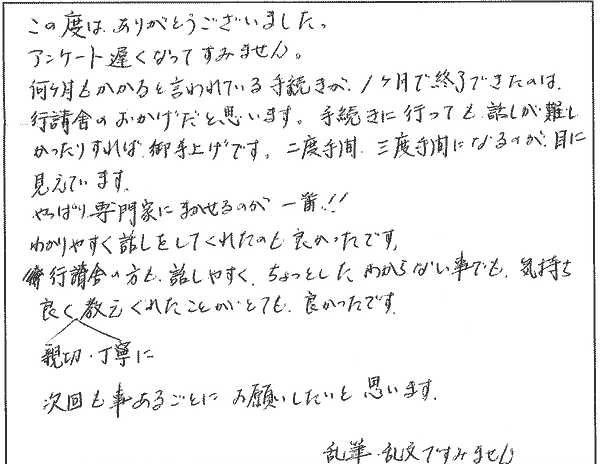 この度は、ありがとうございました。
アンケート遅くなってすみません。
何ヶ月もかかると言われている手続きが、1ヶ月で終了できたのは、
行請舎のおかげだと思います。手続きに行っても、話しが難し
かったりすれば、御手上げです。二度手間、三度手間になるのが、目に
見えています。
やっぱり専門家にまかせるのが一番!!
わかりやすく話しをしてくれたのも良かったです。
行請舎の方も、話しやすく、ちょっとした わからない事でも、気持ち
良く教えくれたことがとても、良かったです。
親切・丁寧に
次回も事あるごとに お願いしたいと思います。
乱筆・乱文ですみません